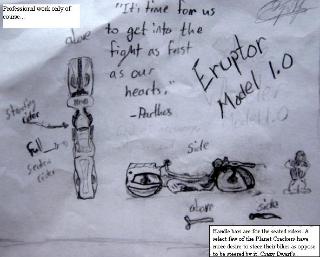 Professional work only of
course...
"It's time for us
to get into the
fight as first
as our
hearts."
above
Eruptor
Model 1.0
Standing
rider
Full
Seated
rider
Side
above
side
Handle bars are for the seated riders. A
select few of the Planet Crackers have
more desire to steer their bikes as oppose
to be steered by it. Crazy Dwarfs.